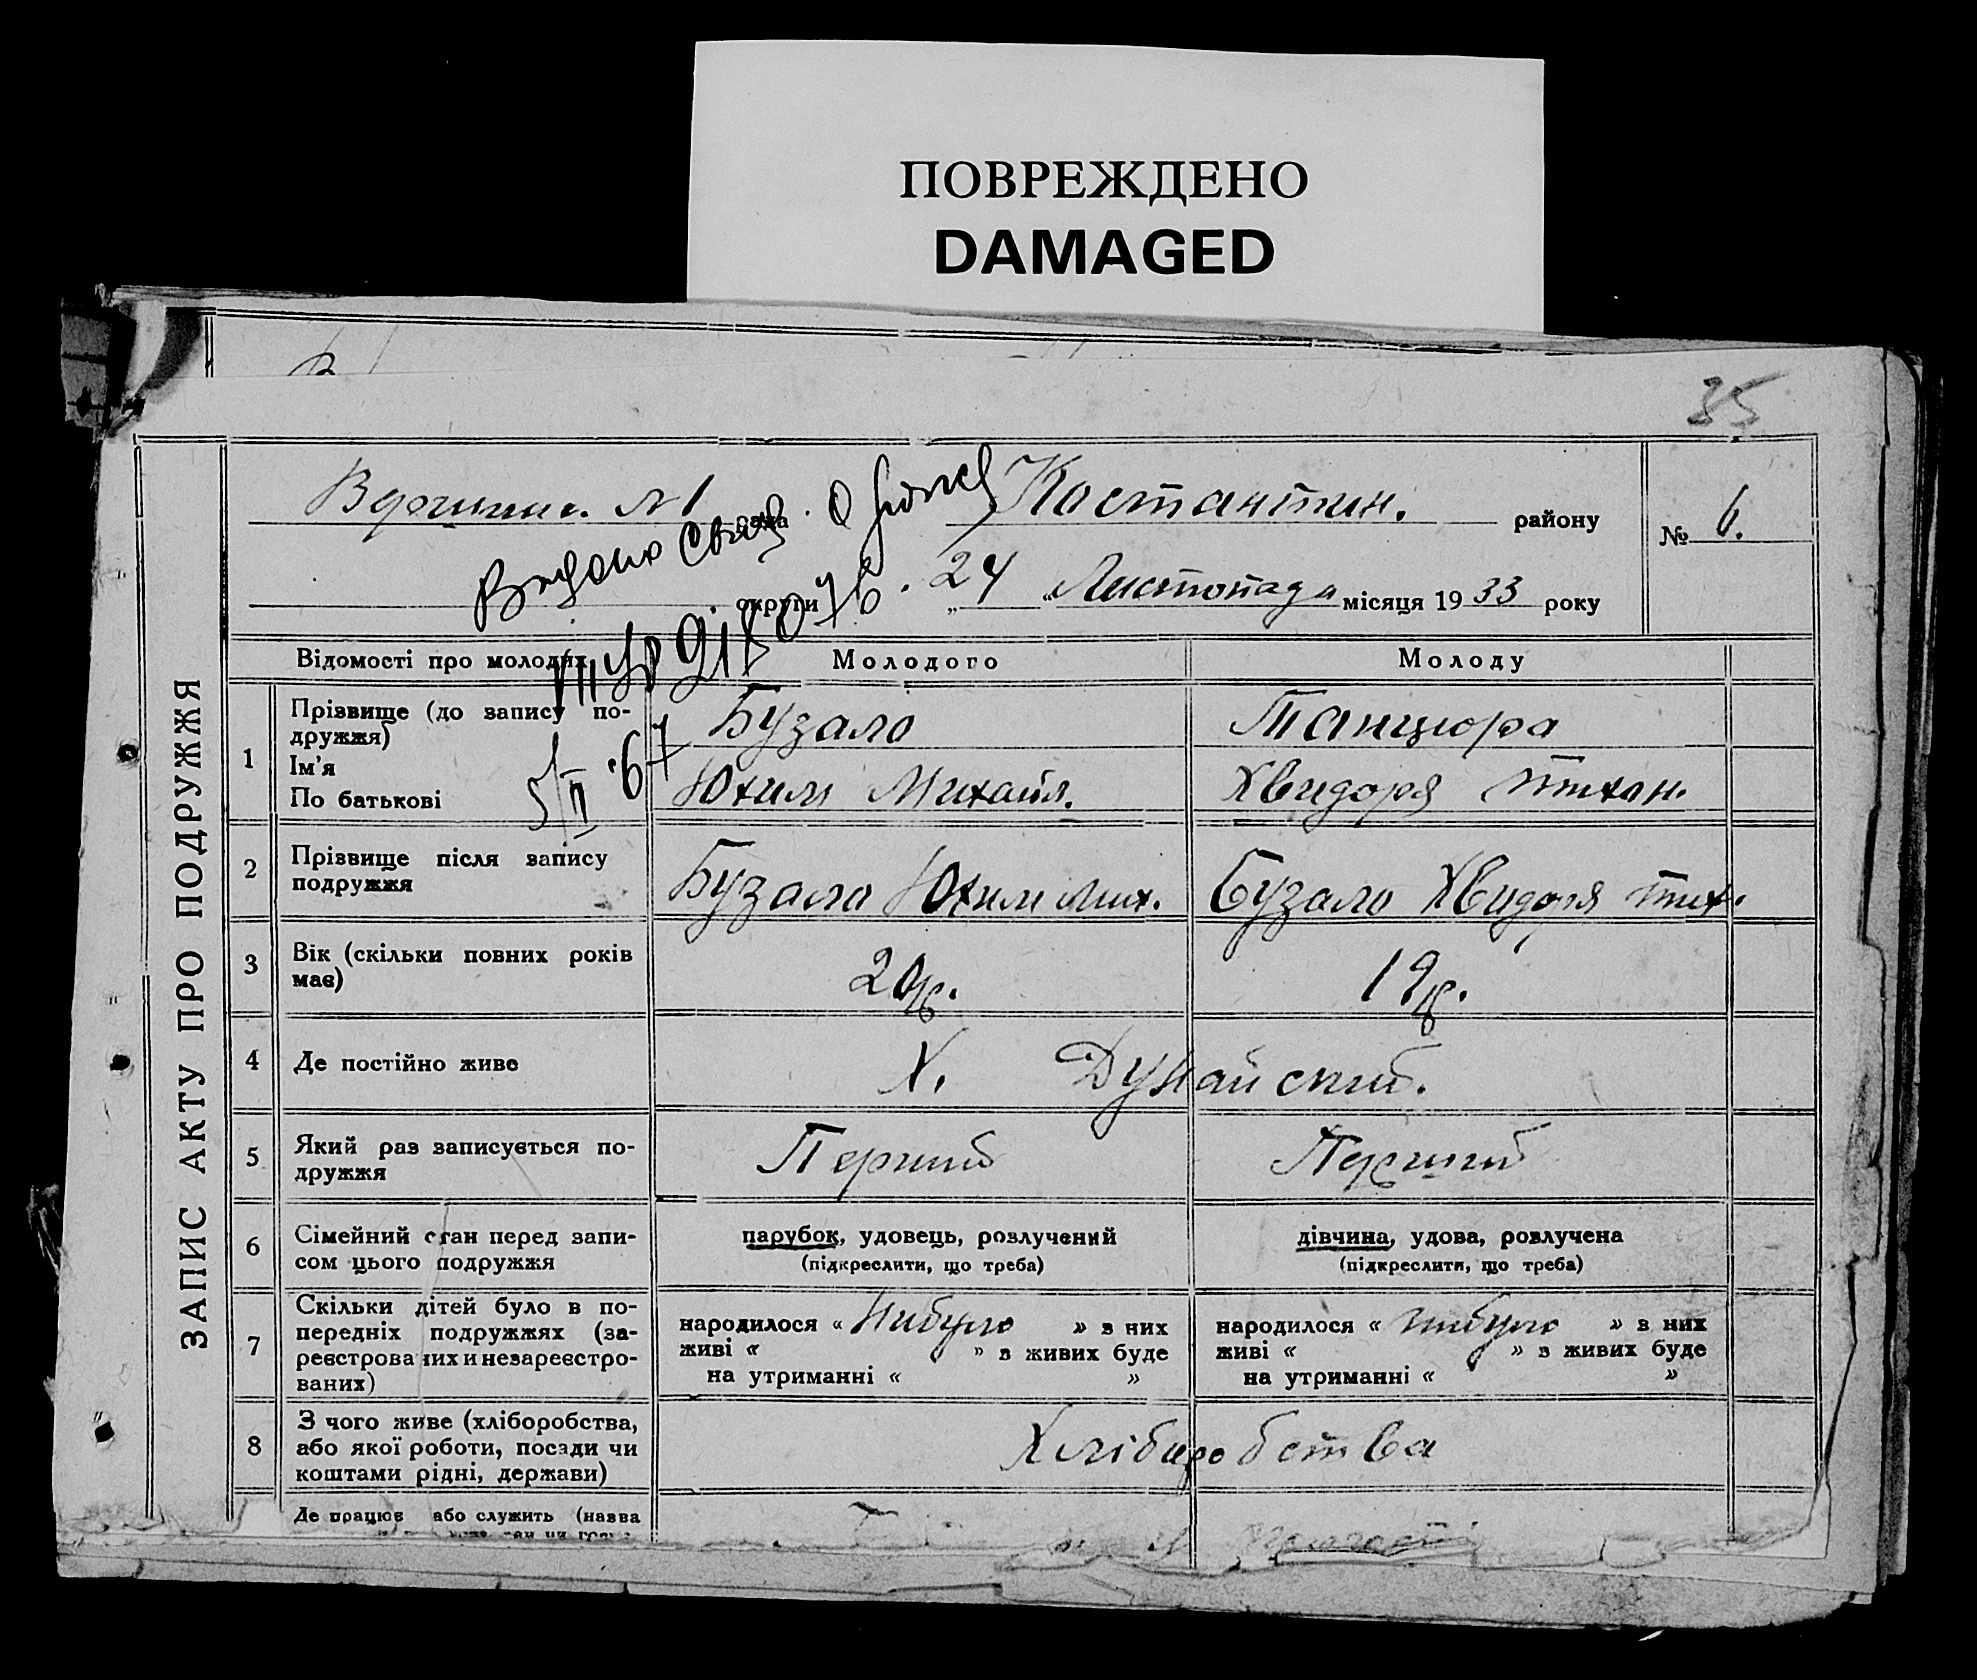 ПОВРЕЖДЕНО
DAMAGED
35
№ 1 рада Костантин. району № 6.
Видано свид. о браке
округи „ 24 “ Листопада місяця 1933 року
5/II 67
ЗАПИС АКТУ ПРО ПОДРУЖЖЯ
Відомості про молодих Молодого Молоду
1 Прізвище (до запису по-
дружжя) Бузало Танцюра
Ім'я
По батькові Юхим Михайл. Хвидоря Тихон.
2 Прізвище після запису
подружжя Бузало Юхим Мих. Бузало Хвидоря Тих.
3 Вік (скільки повних років
має) 20 р. 19 р.
4 Де постійно живе Х. Дунайский.
5 Який раз записується по-
дружжя Перший Перший
6 Сімейний стан перед запи-
сом цього подружжя парубок, удовець, розлучений дівчина, удова, розлучена
(підкреслити, що треба) (підкреслити, що треба)
7 Скільки дітей було в по-
передніх подружжях (за-
реєстрованих и незареєстро-
ваних)
народилося « Нибуло » з них народилося « нибуло » з них
живі « » з живих буде живі « » з живих буде
на утриманні « » на утриманні « »
8 З чого живе (хліборобства,
або якої роботи, посади чи
коштами рідні, держави) Хліборобства
Де працює або служить (назва